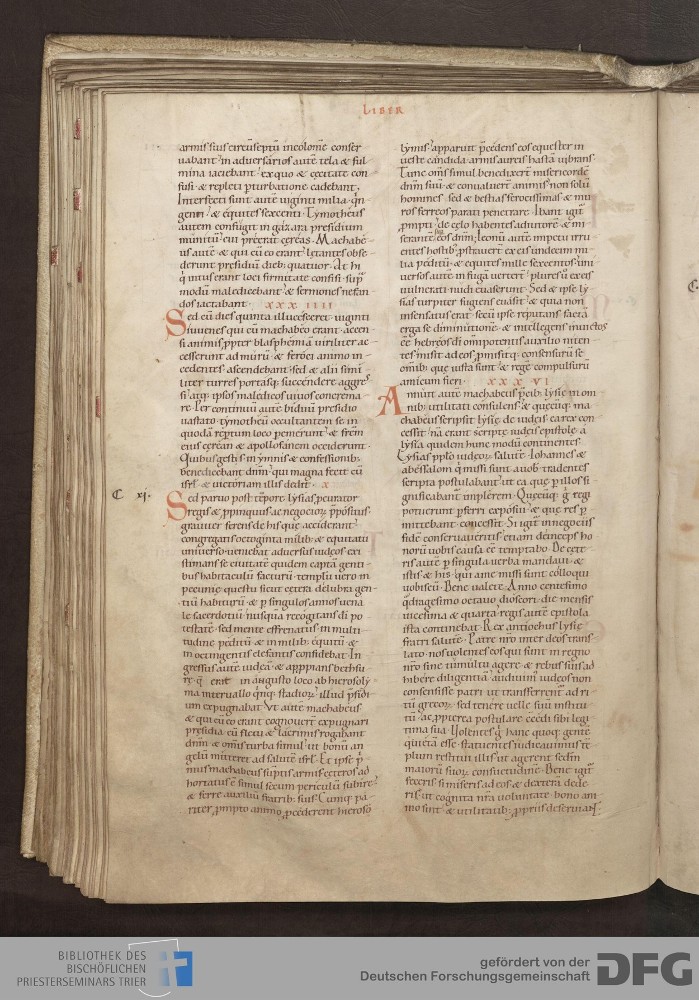 LIBER
armis suis circūseptū incolomē conser
uabant· in aduersarios autē tela & ful
mina iaciebant· ex quo & cecitate con
fusi· & repleti pturbatione cadebant·
Interfecti sunt autē uiginti milia· qn
genti· & equites sexcenti· Tymotheus
autem confugit in gazara presidium
munitū· cui preerat cereas· Machabe
us autē & qui cū eo erant· letantes obse
derunt presidiū dieb; quatuor· At hi
q intus erant loci firmitate confisi· sup
modū maledicebant· & sermones nefan
dos iactabant· XXXIIII
Sed cū dies quinta illucesceret· uiginti
iuuenes qui cū machabeo erant· accen
si animis ppter blasphemiā· uiriliter ac
cesserunt ad murū· & feroci animo in
cedentes ascendebant· sed & alii simi
liter turres portasq; succendere aggres
si atq; ipsos maledicos uiuos concrema
re· Per continuū autē biduū presidio
uastato· tymotheū occultantem se in
quodā reptum loco peremerunt· & frēm
eius cerean & apollofanen occiderunt·
Quibus gestis in ymnis & confessionib;
benedicebant dnm· qui magna fecit cū
isrl· & uictoriam illis dedit· X
C xi·
Sed paruo post tēpore lysias pcurator
regis & ppinquus ac negocior ppositus
grauiter ferens de his que acciderant·
congregatis octoginta milib; & equitatu
uniuerso ueniebat aduersus iudeos· exi
stimans se ciuitatē quidem captā genti
bus habitaculū facturū· templū uero in
pecunie questū sicut cetera delubra gen
tiū habiturū· & p singulos annos uena
le sacerdotiū· nusquā recogitans di po
testatē· sed mente effrenatus in multi
tudine peditū· & in milib; equitū· &
in octingentis elefantis confidebat· In
gressus autē iudeā· & appians bethsu
re· q erat in angusto loco ab hierosoly
ma interuallo qnq; stadior· illud psidi
um expugnabat· Vt autē machabeus
& qui cū eo erant cognouert expugnari
presidia· cū fletu & lacrimis rogabant
dnm & omīs turba simul· ut bonū an
gelū mitteret ad salutē isrl· Et ipse p
mus machabeus sūptis armis ceteros ad
hortatus ē simul secum periculū subire·
& ferre auxiliū fratrib; suis· Cumq; pa
riter pmpto animo pcederent hieroso
lymis· apparuit pcedens eos eques ter in
ueste candida· armis aureis hastā uibrans·
Tunc omīs simul benedixert misericordē
dnm suū· & conualuert animis· non solū
homines· sed & bestias ferocissimas· & mu
ros ferreos parati penetrare· Ibant igit
pmpti· de celo habentes adiutorē & mi
serantē sup eos dnm· leonū autē impetu irru
entes hostib; pstrauert ex eis undecim mi
lia peditū· & equites mille sexcentos· uni
uersos autē in fugā uertert· plures ū ex eis
uulnerati nudi euaserunt· Sed & ipse ly
sias turpiter fugiens euasit· & quia non
insensatus erat· secū ipse reputans factā
erga se diminutionē· & intellegens inuictos
ēē hebreos di omipotentis auxilio niten
tes· misit ad eos· pmisitq; consensurū se
omib; que iusta sunt· & regē compulsurū
amicum fieri· XXXVI
Annuit autē machabeus pcib; lysie in om
nib; utilitati consulens· & quecūq; ma
chabeus scripsit lysie de iudeis· ea rex con
cessit· nā erant scripte iudeis epistole· a
lysia quidem hunc modū continentes·
Lysias pplo iudeor salutē· Iohannes &
abessalom q missi sunt a uob· tradentes
scripta postulabant· ut ea que p illos si
gnificabant implerem· Quecūq; g regi
potuerunt pferri exposui· & que res p
mittebant concessit· Si igit in negociis
fidē conseruaueritis· etiam deinceps bo
norū uobis causa ēē temptabo· De cete
ris autē p singula uerba mandaui· &
istis & his· qui a me missi sunt colloqui
uobiscū· Bene ualete· Anno centesimo
qdragesimo octauo dioscori die mensis
uicesima & quarta· regis autē epistola
ista continebat· Rex antiochus lysie
fratri salutē· Patre nro inter deos trans
lato· nos uolentes eos qui sunt in regno
nro sine tumultu agere· & rebus suis ad
hibere diligentiā· audiuim iudeos non
consensisse patri ut transferrent ad ri
tū grecor· sed tenere uelle sui institu
tū· ac ppterea postulare ccedi sibi legi
tima sua· Volentes g hanc quoq; gentē
quietā esse· statuentes iudicauimus te
plum restitui illis· ut agerent scdm
maiorū suor consuetudinē· Bene igit
feceris si miseris ad eos· & dexterā dede
ris· ut cognita nra uoluntate bono ani
mo sint· & utilitatib; ppriis deseruiant·
BIBLIOTHEK DES
BISCHÖFLICHEN
PRIESTERSEMINARS TRIER
gefördert von der
Deutschen Forschungsgemeinschaft
DFG